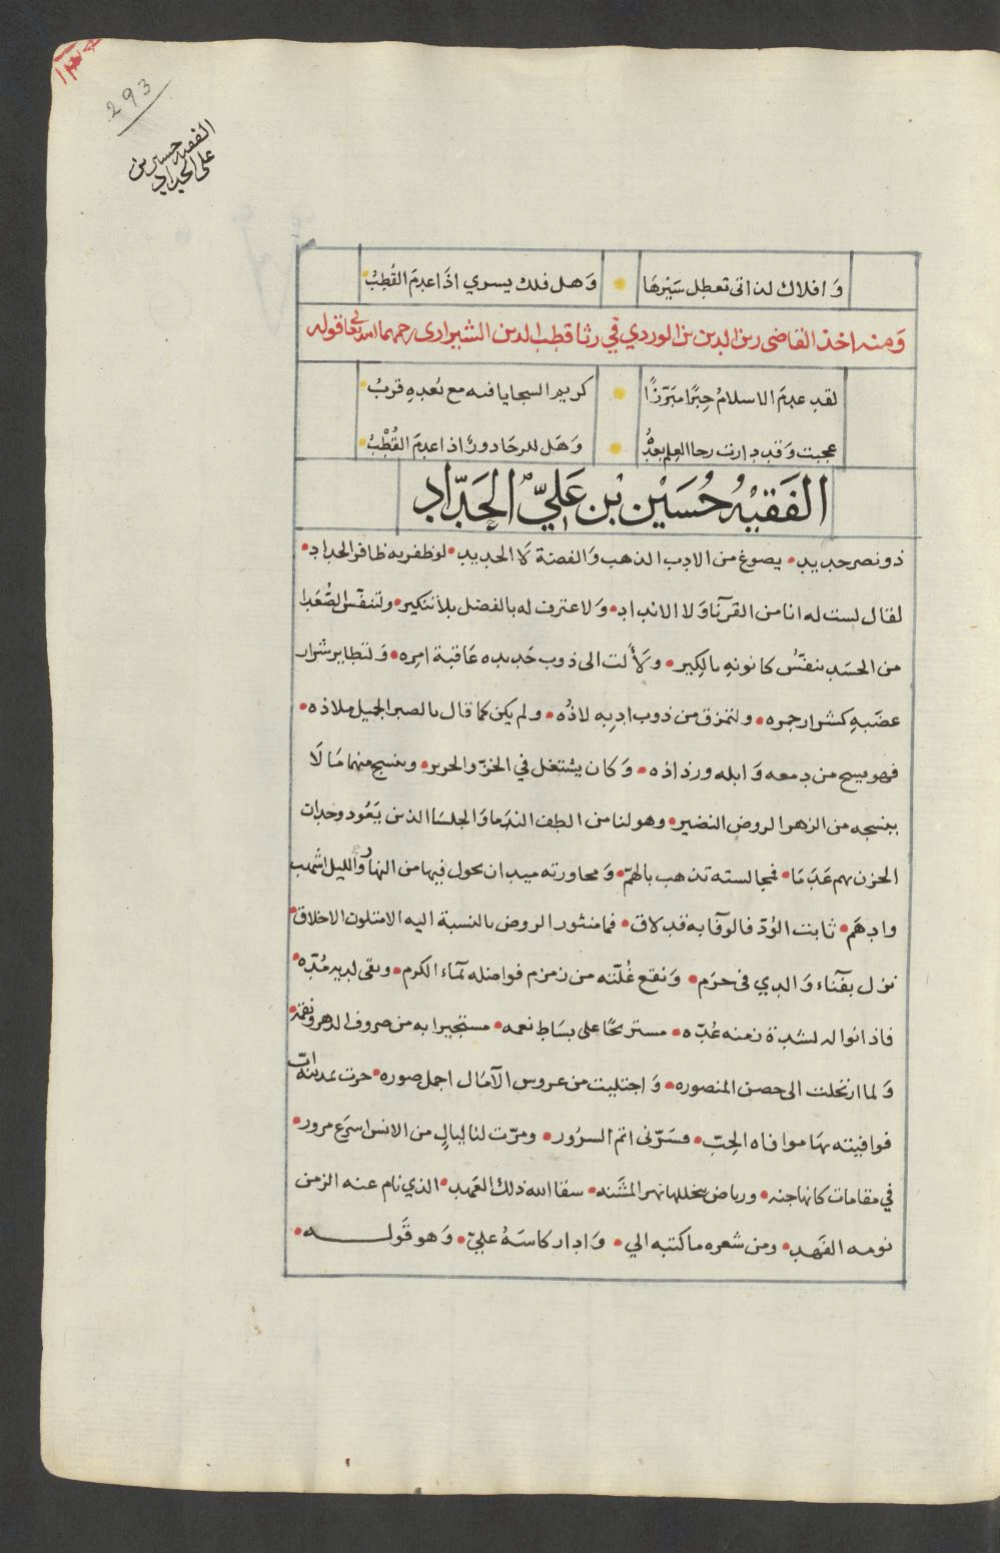 293
الفقيه حسين بن
علي الحداد
وَافلاك لذاتى تعطل سَيْرهَا وَهل فلك يسري اذَا عدِمَ القُطبُ
وَمنه اخذ القاضى زين الدين بن الوردي في رثا قطب الدين الشيرازى رحمهما الله تعالى قوله
لقد عدِمَ الاسلامُ حِبرًا مبَرّزًا كريم السجايا فيه مع بُعدِهِ قربُ
عجبت وَقد دارت رحا العلم بعدهُ وَهَل للرحَا دورٌ اذا عدِمَ القُطْبُ
الفَقيْهُ حُسَيْن بْن عَليّ الحَدّاد
ذو نصر حديد يصوغ من الادب الذهب وَالفضة لَا الحديد لو ظفر به ظافر الحداد
لقال لست له انا من القرنآ وَلا الانداد وَلاعترف له بالفضل بلا تنكير ولتنفّس الصُّعَدا
من الحسَد بنفّس كانونهِ بالكِير وَلَأُلت الى ذوب حَديده عَاقبة امِره وَلتطاير شرار
عضَبهِ كشرار جمره ولتمزق من ذوب ادبِه لاذُه ولم يكن كما قال بالصبر الجميل ملاذه
فهو يسح من دمعه وَابله ورذاذه وَكان يشتغل في الخزّ والحرير وينسج منهما مَا لَا
ينسجه من الزهر الروض النضير وهو لنا من الطف الندَما وَالجلسَا الذين يَعُود وجدات
الحزن بهم عَدَمَا فمجالسته تذهب بالهمّ وَمحاورته ميدان يجول فيها من النهار وَالليل اشهب
وادهَم ثابت الوُدّ فالوفَا به قد لاق فما منثور الروض بالنسبة اليه الا متلون الاخلاق
نزل بفنَاء وَالدي فى حرَم وَنقع غُلّته من زمزم فواضله بمآء الكرم وبقى لديه مُدّه
فاذا نواله لشدة زمنه عُدّه مستريحًا على بسَاط نعمه مستجيرا به من صروف الدهر ونقمه
وَلما ارتحلت الى حصن المنصوره وَاجتليت من عروس الآمَال اجمل صوره
فوافيته بهَا موافاه الحِبّ فسَرّنى اتم السرُور ومرّت لنا ليالٍ من الانس اسرَع مرور
في مقامات كانها جنه ورياض يتخللها نهر المشَنه سقا الله ذلك العَهد الذي نام عنه الزمن
نومه الفَهد ومن شعره ما كتبه الي وَادار كاسَهُ عليّ وَهو قَولـــه